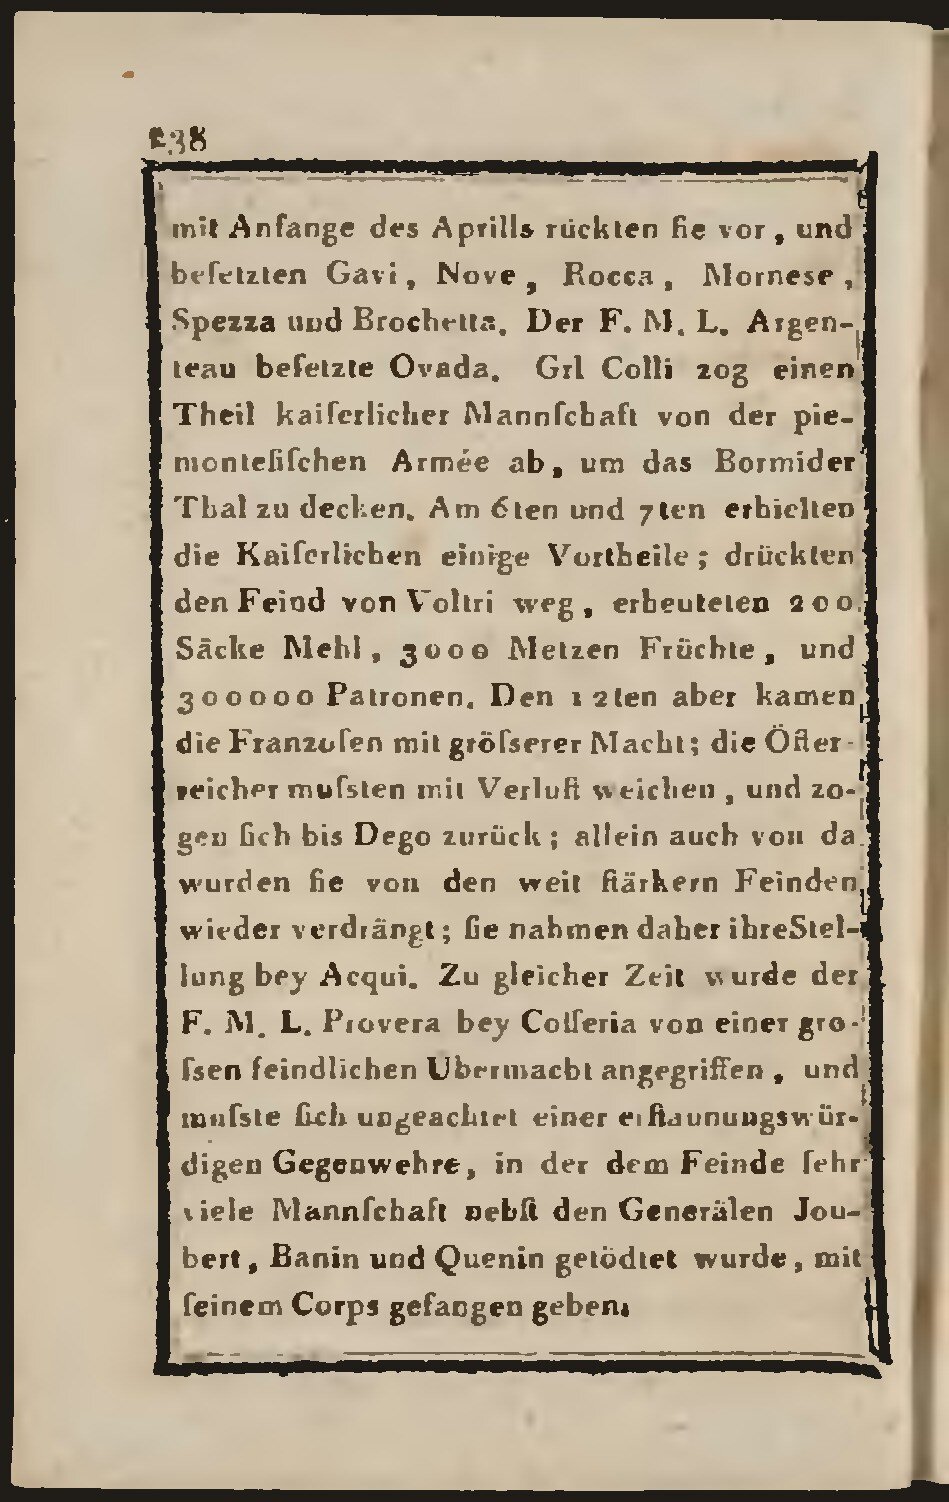 238
mit Anfange des Aprills rückten ſie vor, und
beſetzten Gavi, Nove, Rocca, Mornese,
Spezza und Brochetta. Der F. M. L. Argen-
teau beſetzte Ovada. Grl Colli zog einen
Theil kaiſerlicher Mannſchaft von der pie-
monteſiſchen Armée ab, um das Bormider
Thal zu decken. Am 6ten und 7ten erhielten
die Kaiſerlichen einige Vortheile; drückten
den Feind von Voltri weg, erbeuteten 200
Säcke Mehl, 3000 Metzen Früchte, und
300000 Patronen. Den 12ten aber kamen
die Franzoſen mit gröſserer Macht; die Öſter-
reicher muſsten mit Verluſt weichen, und zo-
gen ſich bis Dego zurück; allein auch von da
wurden ſie von den weit ſtärkern Feinden
wieder verdrängt; ſie nahmen daher ihreStel-
lung bey Acqui. Zu gleicher Zeit wurde der
F. M. L. Provera bey Coſſeria von einer gro-
ſsen feindlichen Ubermacht angegriffen, und
muſste ſich ungeachtet einer erſtaunungswür-
digen Gegenwehre, in der dem Feinde ſehr
viele Mannſchaft nebſt den Generälen Jou-
bert, Banin und Quenin getödtet wurde, mit
ſeinem Corps gefangen geben.